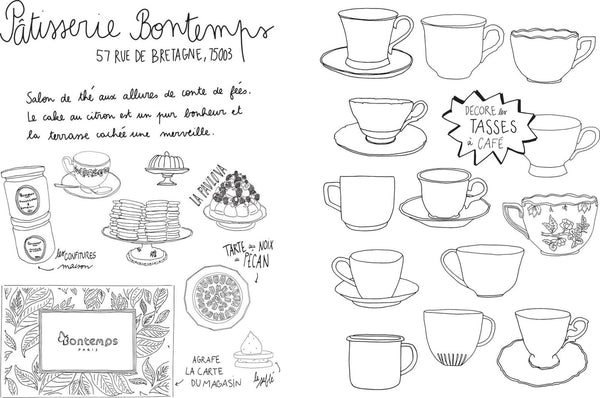 Pâtisserie Bontemps
57 RUE DE BRETAGNE, 75003
Salon de thé aux allures de conte de fées.
Le cake au citron est un pur bonheur et
la terrasse cachée une merveille.
LA PAVLOVA
Bontemps
Bontemps
les CONFITURES
maison
TARTE aux NOIX
de PÉCAN
Bontemps
PARIS
AGRAFE
LA CARTE
DU MAGASIN
le sablé
DECORE les
TASSES
à CAFÉ